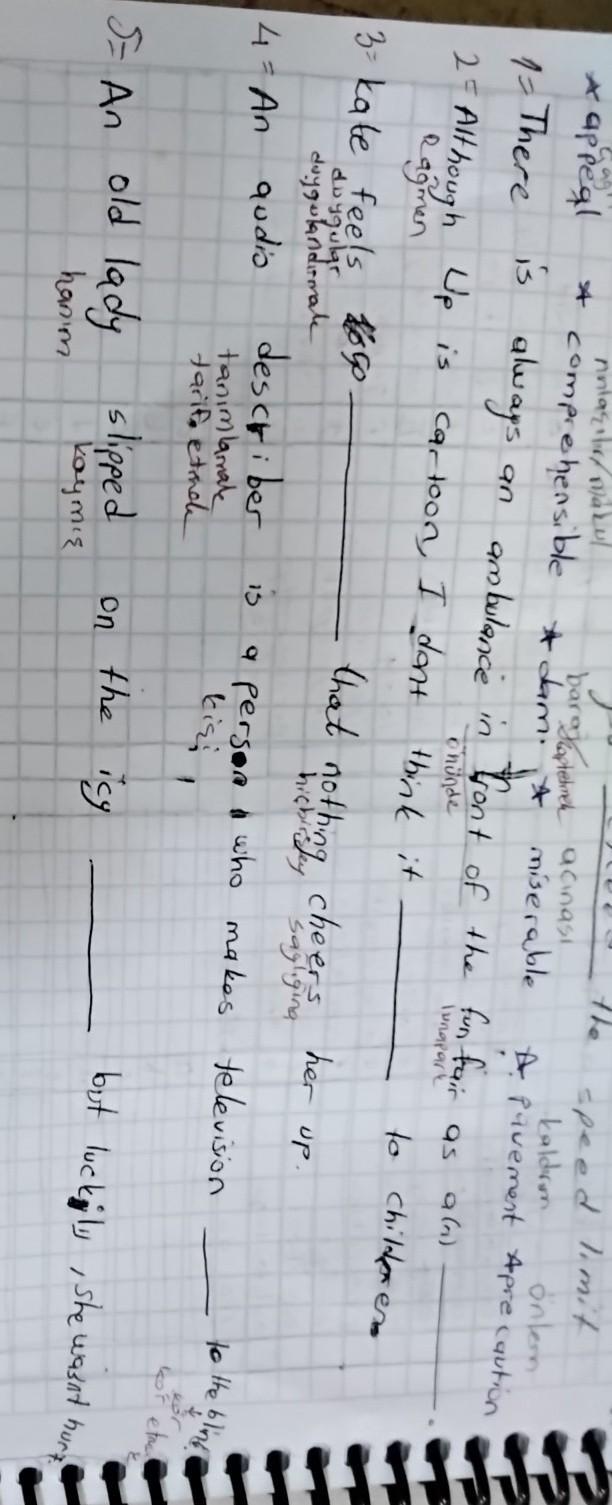 the speed limit
çağrı anlaşılır/makul baraj acınası kaldırım önlem
* appeal * comprehensible * dam * miserable * pavement * precaution
1= There is always an ambulance in front of the fun fair as a(n) ______.
önünde lunapark
2= Although Up is cartoon, I dont think it ______ to children.
Rağmen
3= Kate feels so ______ that nothing cheers her up.
duygular hiçbirşey
duygulandırmak
4= An audio describer is a person who makes television ____ to the blind
tanımlamak kişi kör
tarif etmek
5= An old lady slipped on the icy ______ but luckily, she wasn't hurt
hanım kaymış